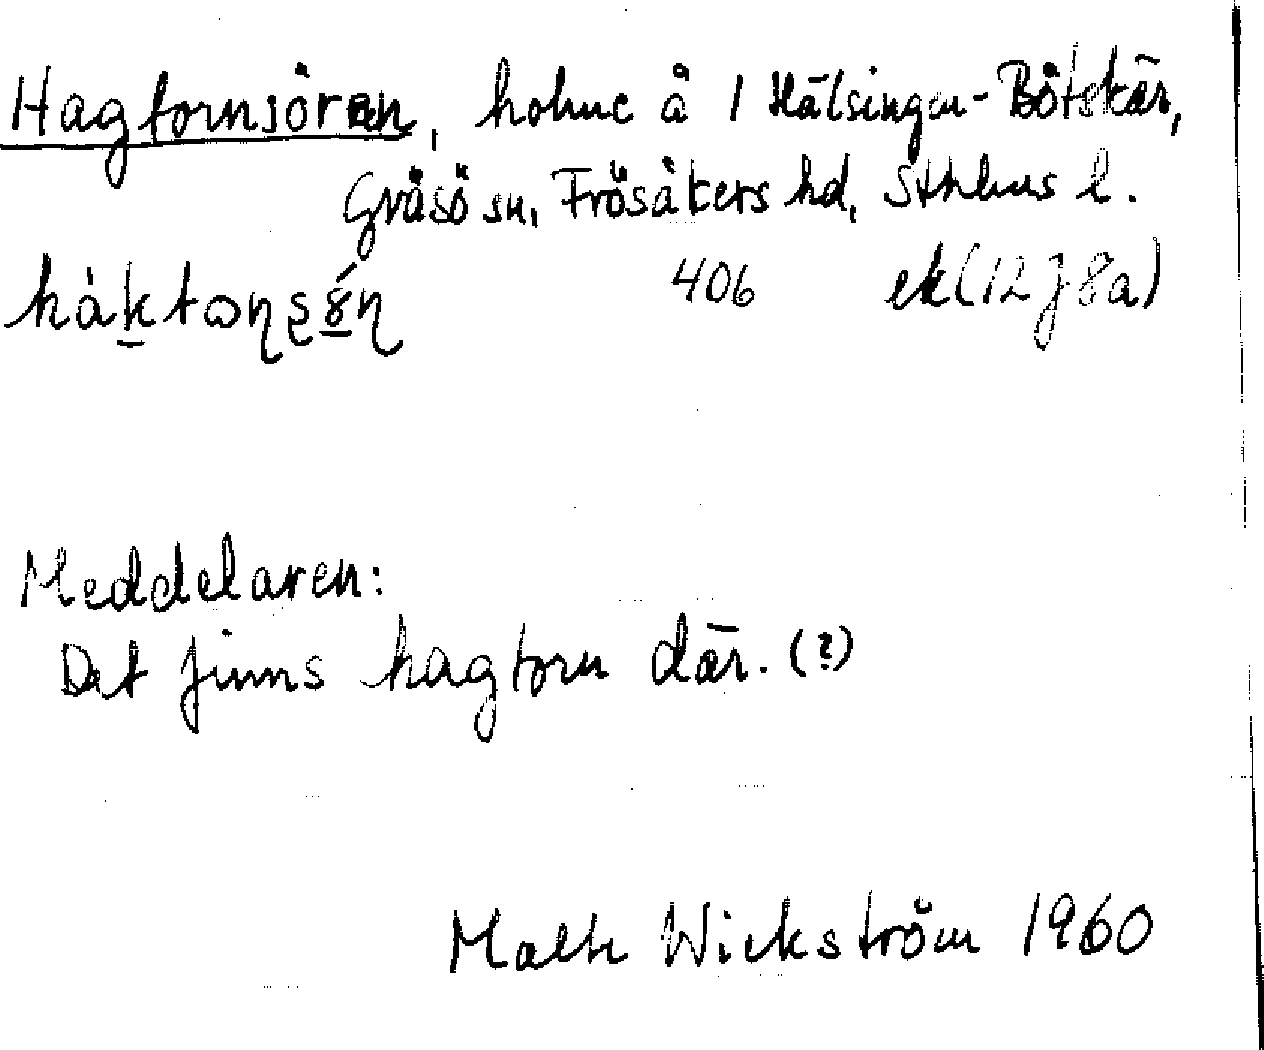 Hagtornsören, holme å 1 Hälsingen-Böteskär,
Gräsö sn, Frösåkers hd, Sthlms l.
406 ek (12J8a)
Meddelaren:
Det finns hagtorn där. (?)
Malte Wickström 1960